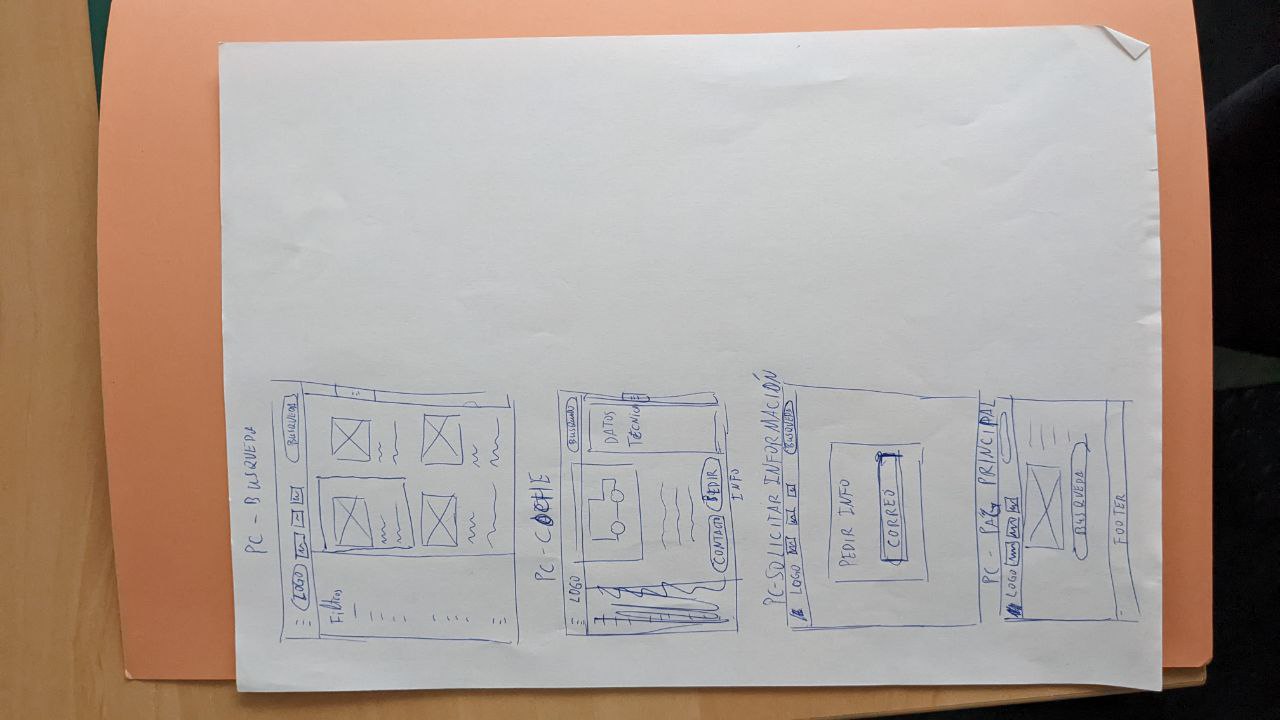 PC - BUSQUEDA
LOGO
BUSQUEDA
Filtros
PC - COCHE
LOGO
BUSQUEDA
DATOS
TÉCNICOS
CONTACTO
PEDIR
INFO
PC - SOLICITAR INFORMACIÓN
LOGO
BUSQUEDA
PEDIR INFO
CORREO
PC - PÁG PRINCIPAL
LOGO
BUSQUEDA
FOOTER